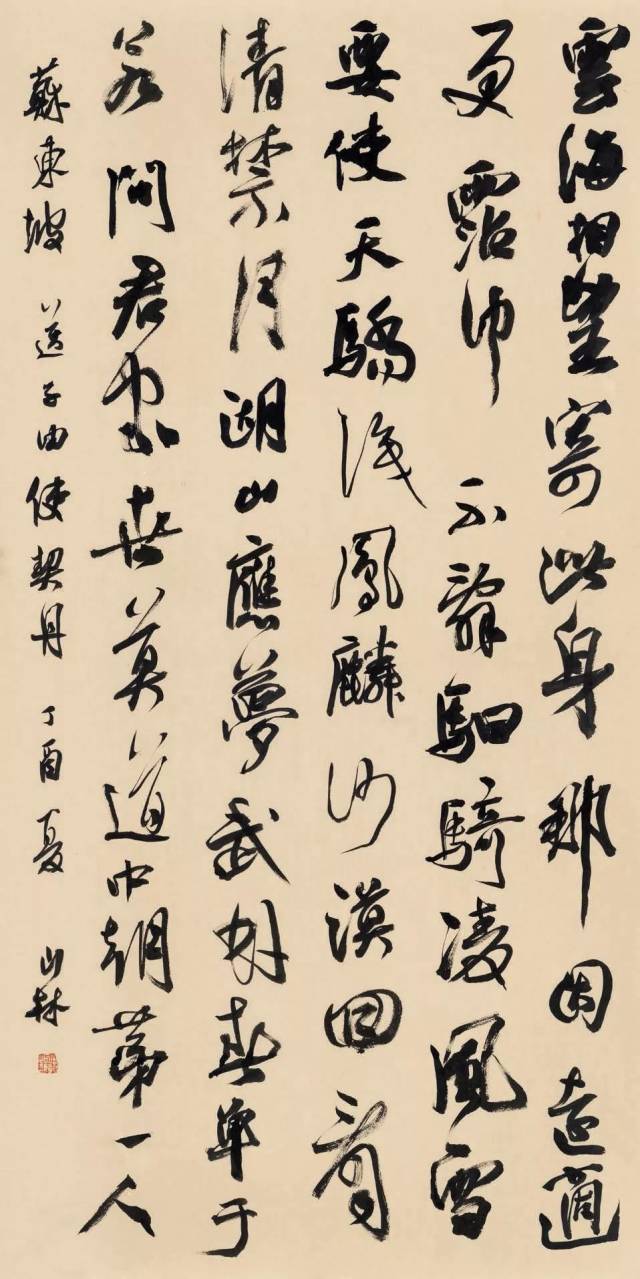 雲海相望寄此身那因遠適
更霑巾不辭馹騎凌風雪
要使天驕識鳳麟沙漠回看
清禁月湖山應夢武林春單于
若問君家世莫道中朝第一人
蘇東坡 送子由使契丹 丁酉夏 山林